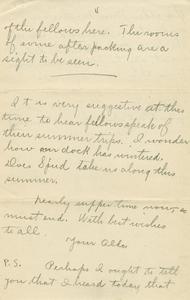 of the fellows here. The rooms
of some after packing are a
sight to be seen.
It is very suggestive at this
time to hear fellows speak of
their summer trips. I wonder
how our dock has wintered.
Does Spud take us along this
summer.
Nearly supper time now, &
must end. With best wishes
to all.
Your
P.S. Perhaps I ought to tell
you that I heard today that